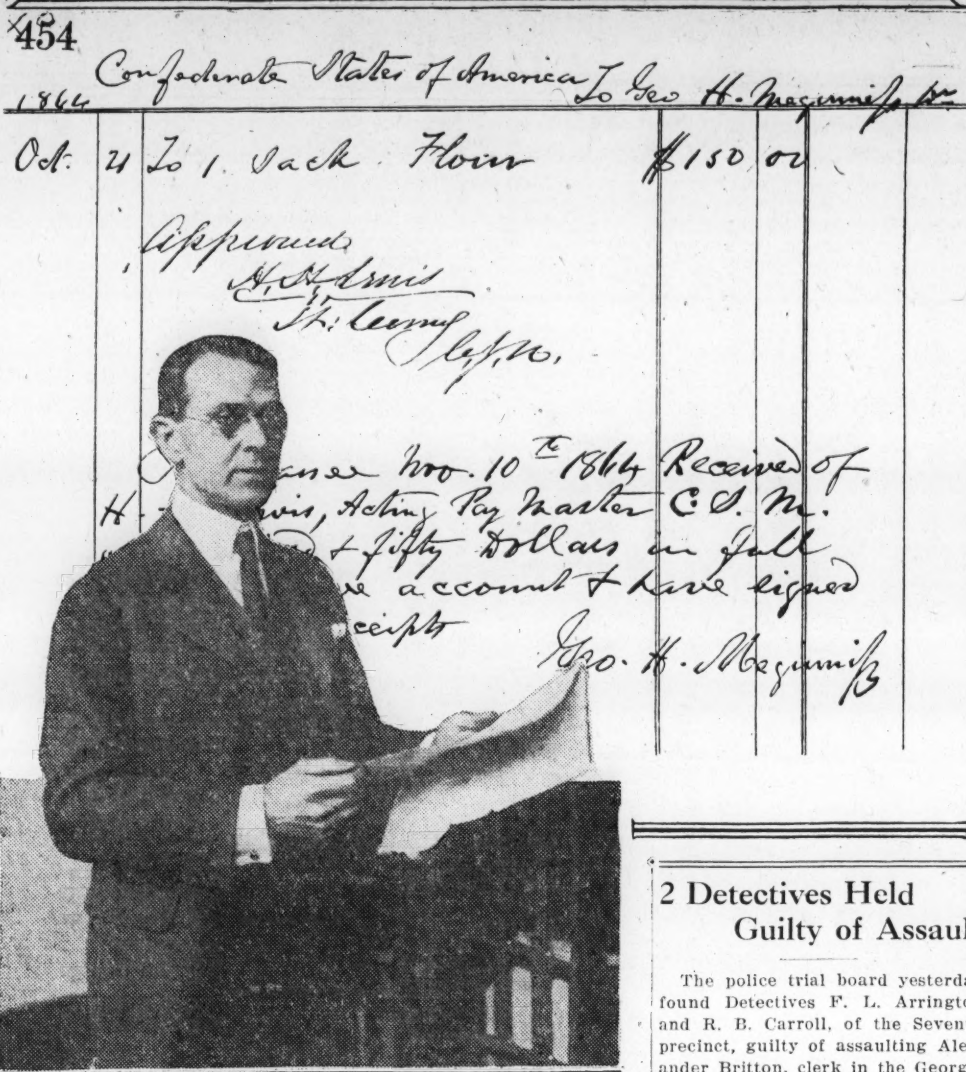 454
Confederate States of America To Geo H. Meginniss Dr
1864
Oct. 21 To 1 Sack Flour $150 00
Approved
H. H.
Nov. 10th 1864 Received of
H. Acting Pay Master C. S. M.
& fifty Dollars in full
account & have signed
ceipts
Geo. H. Meginniss
2 Detectives Held
Guilty of Assaul
The police trial board yesterda
found Detectives F. L. Arringto
and R. B. Carroll, of the Seven
precinct, guilty of assaulting Ale
ander Britton, clerk in the Georg